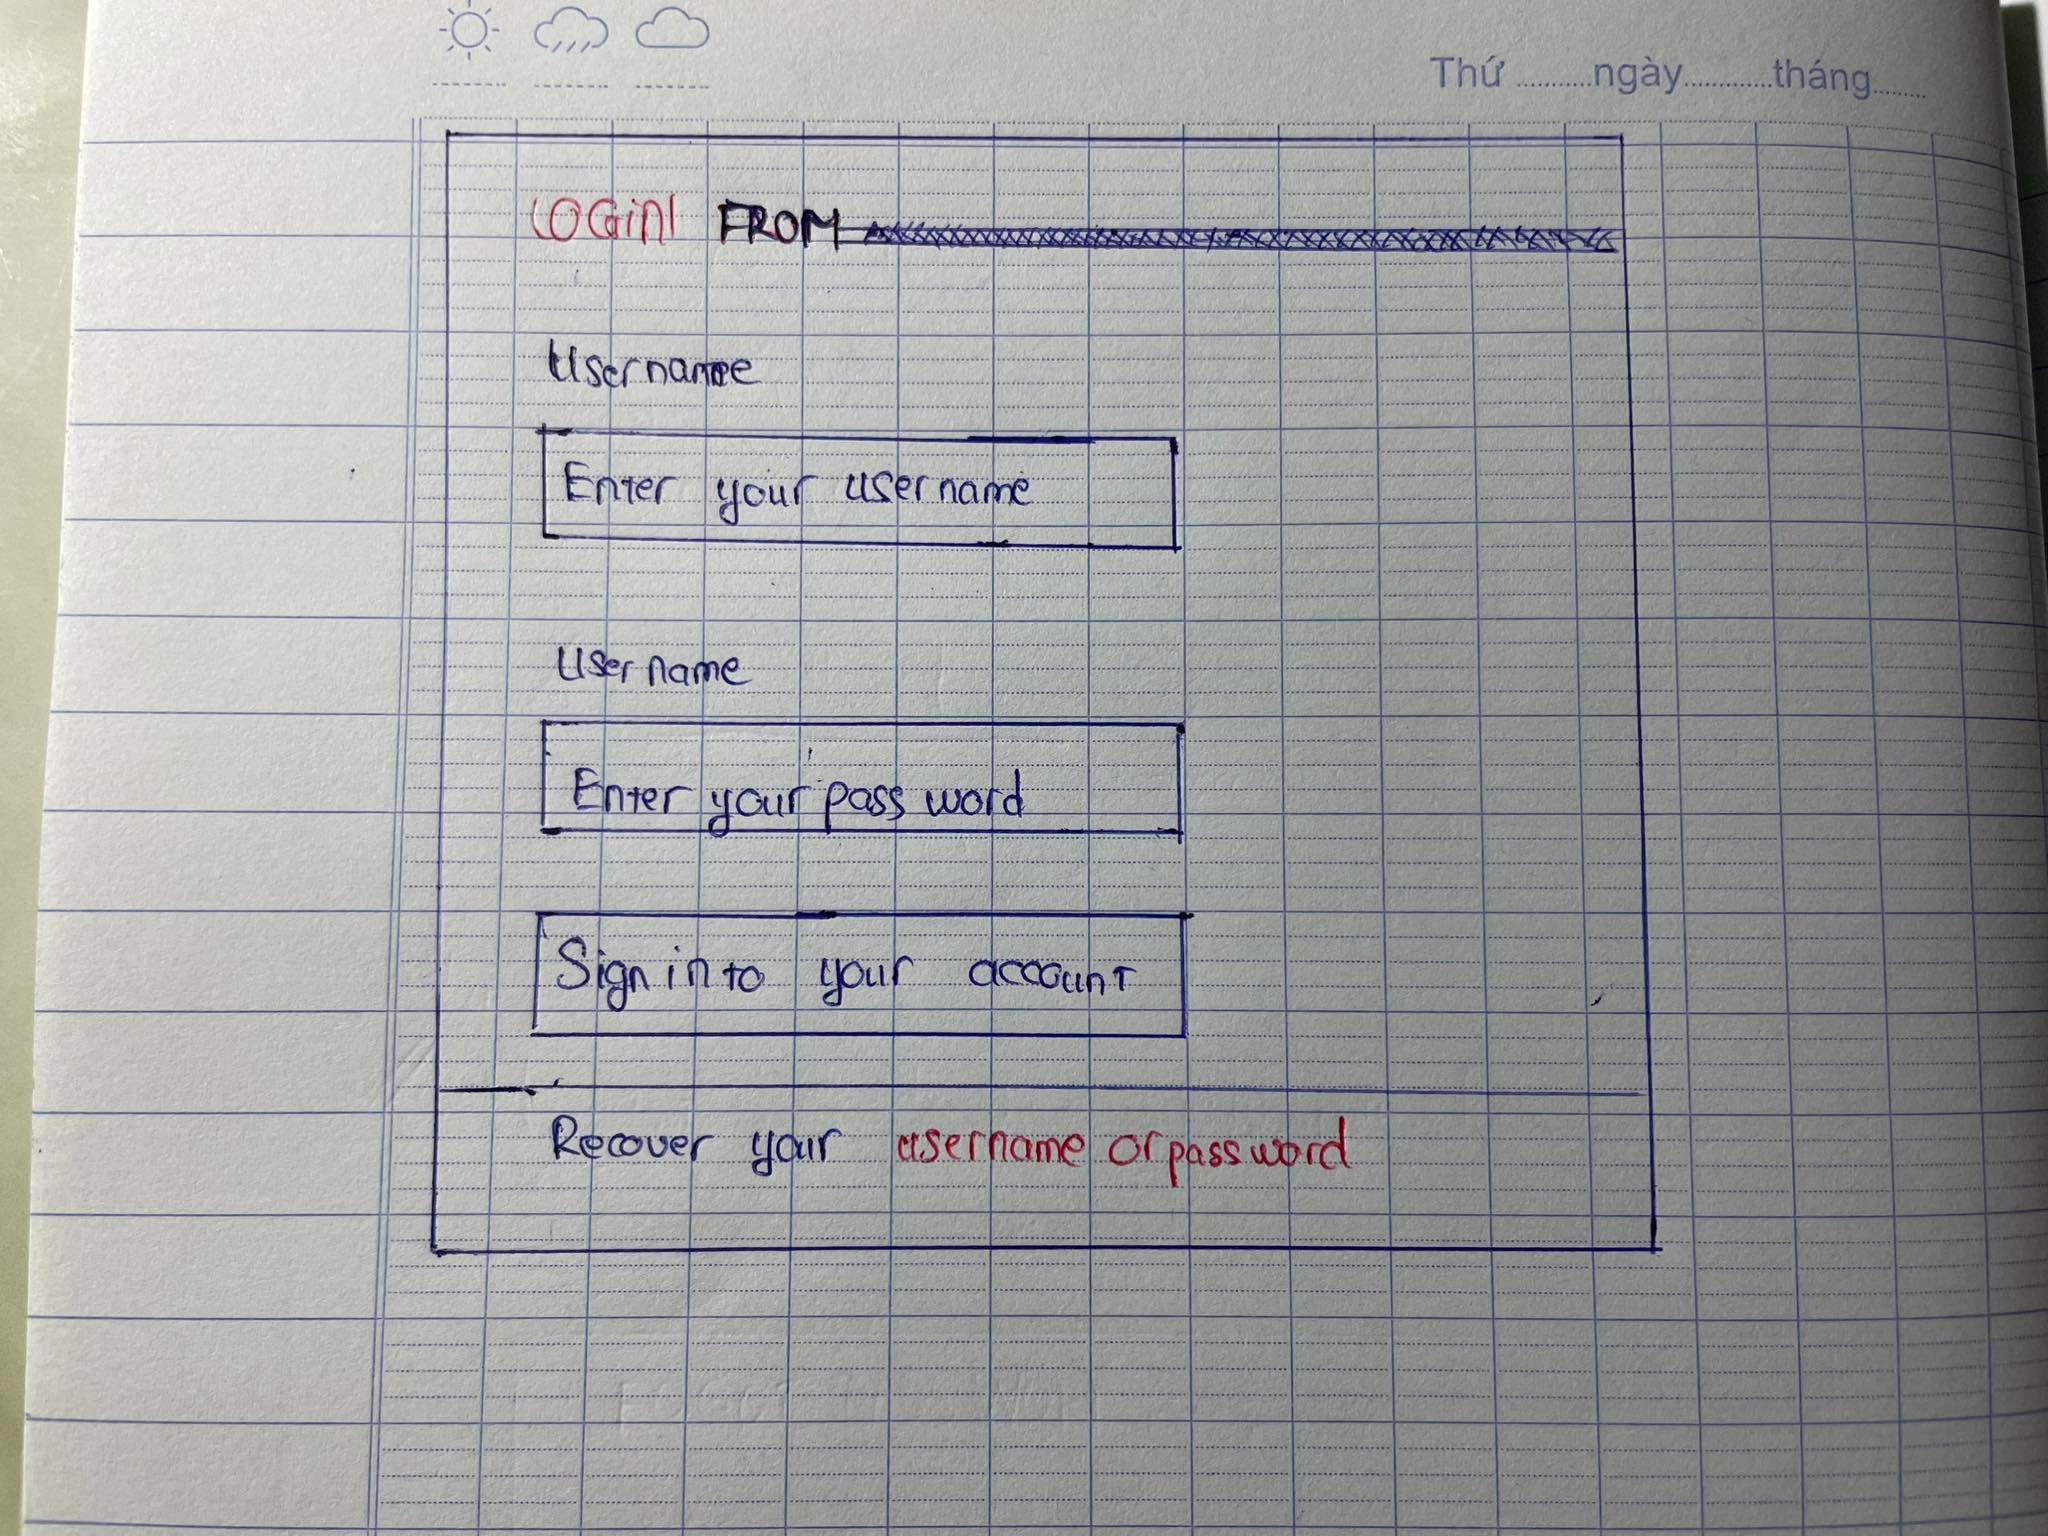 Thứ ngày tháng
LOGIN FROM
Username
Enter your username
Username
Enter your password
Sign in to your account
Recover your username or password